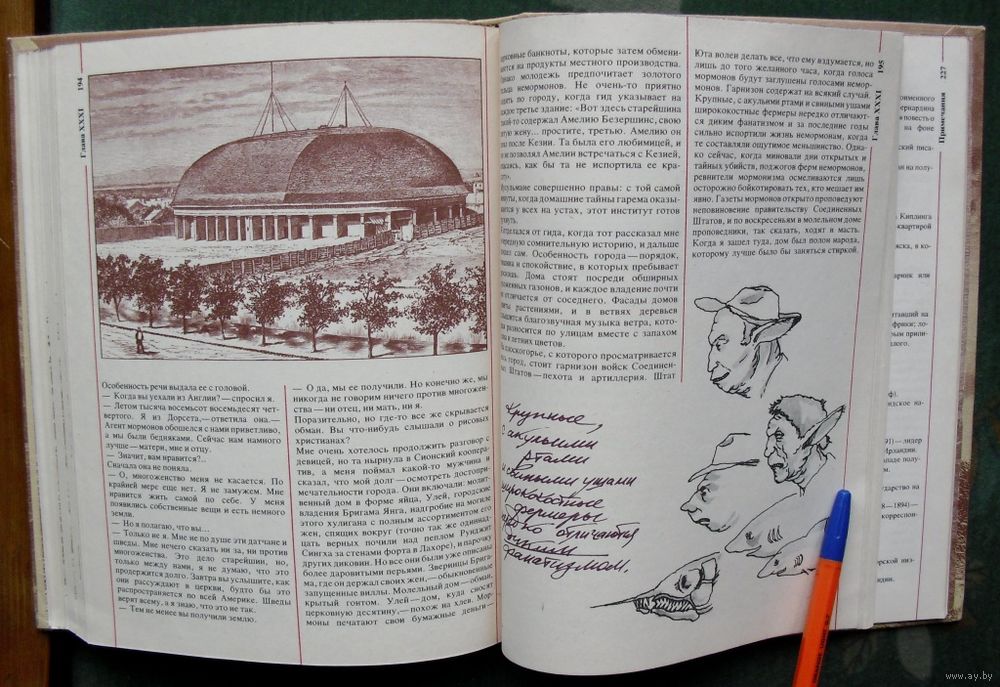 194
Глава XXXI
Особенность речи выдала ее с головой.
— Когда вы уехали из Англии? — спросил я.
— Летом тысяча восемьсот восемьдесят чет-
вертого. Я из Дорсета,— ответила она.—
Агент мормонов обошелся с нами приветливо,
а мы были бедняками. Сейчас нам намного
лучше — матери, мне и отцу.
— Значит, вам нравится?..
Сначала она не поняла.
— О, многоженство меня не касается. По
крайней мере еще нет. Я не замужем. Мне
нравится жить самой по себе. У меня
появились собственные вещи и есть немного
земли.
— Но я полагаю, что вы...
— Только не я. Мне не по душе эти датчане и
шведы. Мне нечего сказать ни за, ни против
многоженства. Это дело старейшин, но,
только между нами, я не думаю, что это
продолжится долго. Завтра вы услышите, как
они рассуждают в церкви, будто бы это
распространяется по всей Америке. Шведы
верят всему, а я знаю, что это не так.
— Тем не менее вы получили землю.
— О да, мы ее получили. Но конечно же, мы
никогда не говорим ничего против многожен-
ства — ни отец, ни мать, ни я.
Поразительно, но где-то все же скрывается
обман. Вы что-нибудь слышали о рисовых
христианах?
Мне очень хотелось продолжить разговор с
девицей, но та нырнула в Сионский коопера-
тив, а меня поймал какой-то мужчина и
сказал, что мой долг — осмотреть достопри-
мечательности города. Они включали: молит-
венный дом в форме яйца, Улей, городские
владения Бригама Янга, надгробие на могиле
этого хулигана с полным ассортиментом его
жен, спящих вокруг (точно так же одинна-
дцать верных почили над пеплом Рунджит
Сингха за стенами форта в Лахоре), и парочку
других диковин. Но все они были уже описаны
более даровитыми перьями. Зверинцы Брига-
ма, где он держал своих жен,— обыкновенные
запущенные виллы. Молельный дом — обман,
крытый гонтом. Улей — дом, куда сносят
церковную десятину,— похож на хлев. Мор-
моны печатают свои бумажные деньги —
церковные банкноты, которые затем обмени-
на продукты местного производства.
молодежь предпочитает золотого
немормонов. Не очень-то приятно
по городу, когда гид указывает на
третье здание: «Вот здесь старейшина
содержал Амелию Безершинс, свою
жену... простите, третью. Амелию он
после Кезии. Та была его любимицей, и
не позволял Амелии встречаться с Кезией,
как бы та не испортила ее кра-
совершенно правы: с той самой
когда домашние тайны гарема оказы-
у всех на устах, этот институт готов
от гида, когда тот рассказал мне
сомнительную историю, и дальше
сам. Особенность города — порядок,
и спокойствие, в которых пребывает
Дома стоят посреди обширных
газонов, и каждое владение почти
не отличается от соседнего. Фасады домов
растениями, и в ветвях деревьев
благозвучная музыка ветра, кото-
разносится по улицам вместе с запахом
и летних цветов.
с которого просматривается
город, стоит гарнизон войск Соединен-
Штатов — пехота и артиллерия. Штат
Юта волен делать все, что ему вздумается, но
лишь до того желанного часа, когда голоса
мормонов будут заглушены голосами немор-
монов. Гарнизон содержат на всякий случай.
Крупные, с акульими ртами и свиными ушами
ширококостные фермеры нередко отличают-
ся диким фанатизмом и за последние годы
сильно испортили жизнь немормонам, когда
те составляли ощутимое меньшинство. Одна-
ко сейчас, когда миновали дни открытых и
тайных убийств, поджогов ферм немормонов,
ревнители мормонизма осмеливаются лишь
осторожно бойкотировать тех, кто мешает им
явно. Газеты мормонов открыто проповедуют
неповиновение правительству Соединенных
Штатов, и по воскресеньям в молельном доме
проповедники, так сказать, ходят в масть.
Когда я зашел туда, дом был полон народа,
которому лучше было бы заняться стиркой.
195
Глава XXXI
Крупные,
с акульими
ртами
и свиными ушами
ширококостные
фермеры
отличаются
диким
фанатизмом.
227
Примечания
повесть о
на фоне
на полу-
Киплинга
квартирой
в ко-
или
на
лидер
Ирландии.
на
1894) —
www.ay.by